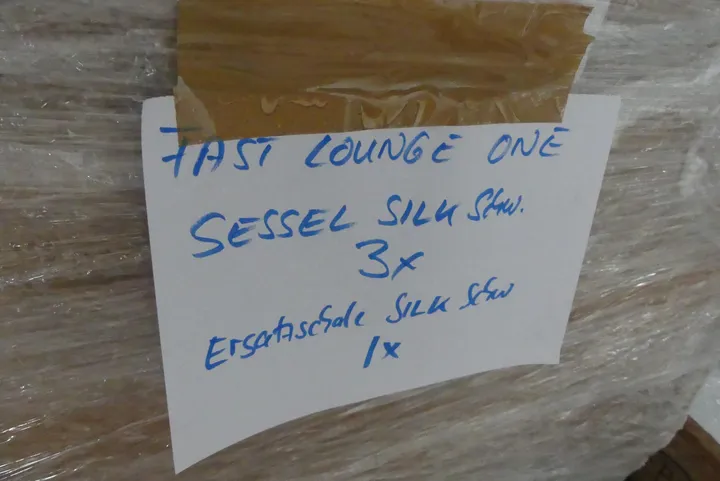 FAST LOUNGE ONE
SESSEL SILK Schw.
3x
Ersatzschale SILK Schw
1x